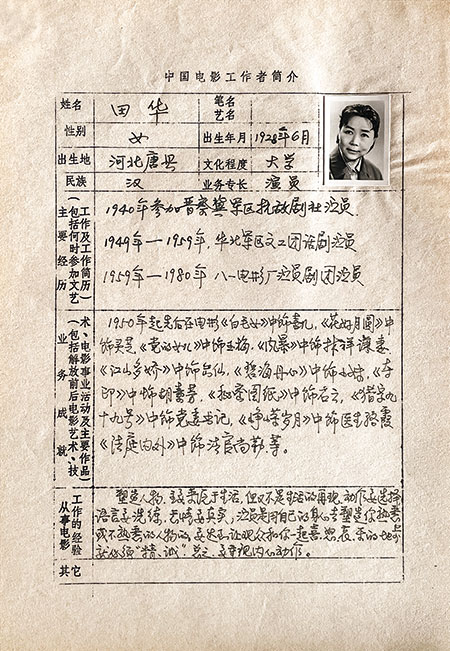 中国电影工作者简介
姓名 田华 笔名 艺名
性别 女 出生年月 1928年6月
出生地 河北唐县 文化程度 大学
民族 汉 业务专长 演员
主要经历
(包括何时参加文艺
工作及工作简历)
1940年参加晋察冀军区抗敌剧社演员
1949年—1959年,华北军区文工团话剧演员
1959年—1980年 八一电影厂演员剧团演员
业务成就
(包括解放前后电影艺术、技
术、电影事业活动及主要作品)
1950年起先后在电影《白毛女》中饰喜儿,《花好月圆》中
饰灵芝《党的女儿》中饰玉梅、《风暴》中饰
《江山多娇》中饰岳仙、《碧海丹心》中饰 《夺
印》中饰胡素芳、《秘密图纸》中饰石云、《猎字九
十九号》中饰党委书记、《峥嵘岁月》中饰医生骆霞
《法庭内外》中饰法官尚勤等。
从事电影
工作的经验
塑造人物,要来源于生活,但又不是生活的再现,动作要选择
语言要洗练,表情要真实,演员是用自己的身心去塑造你熟悉
或不熟悉的人物的,要达到让观众和你一起喜、怒、哀、乐的地步
就必须“精、诚”总之,要重视内心动作。
其它